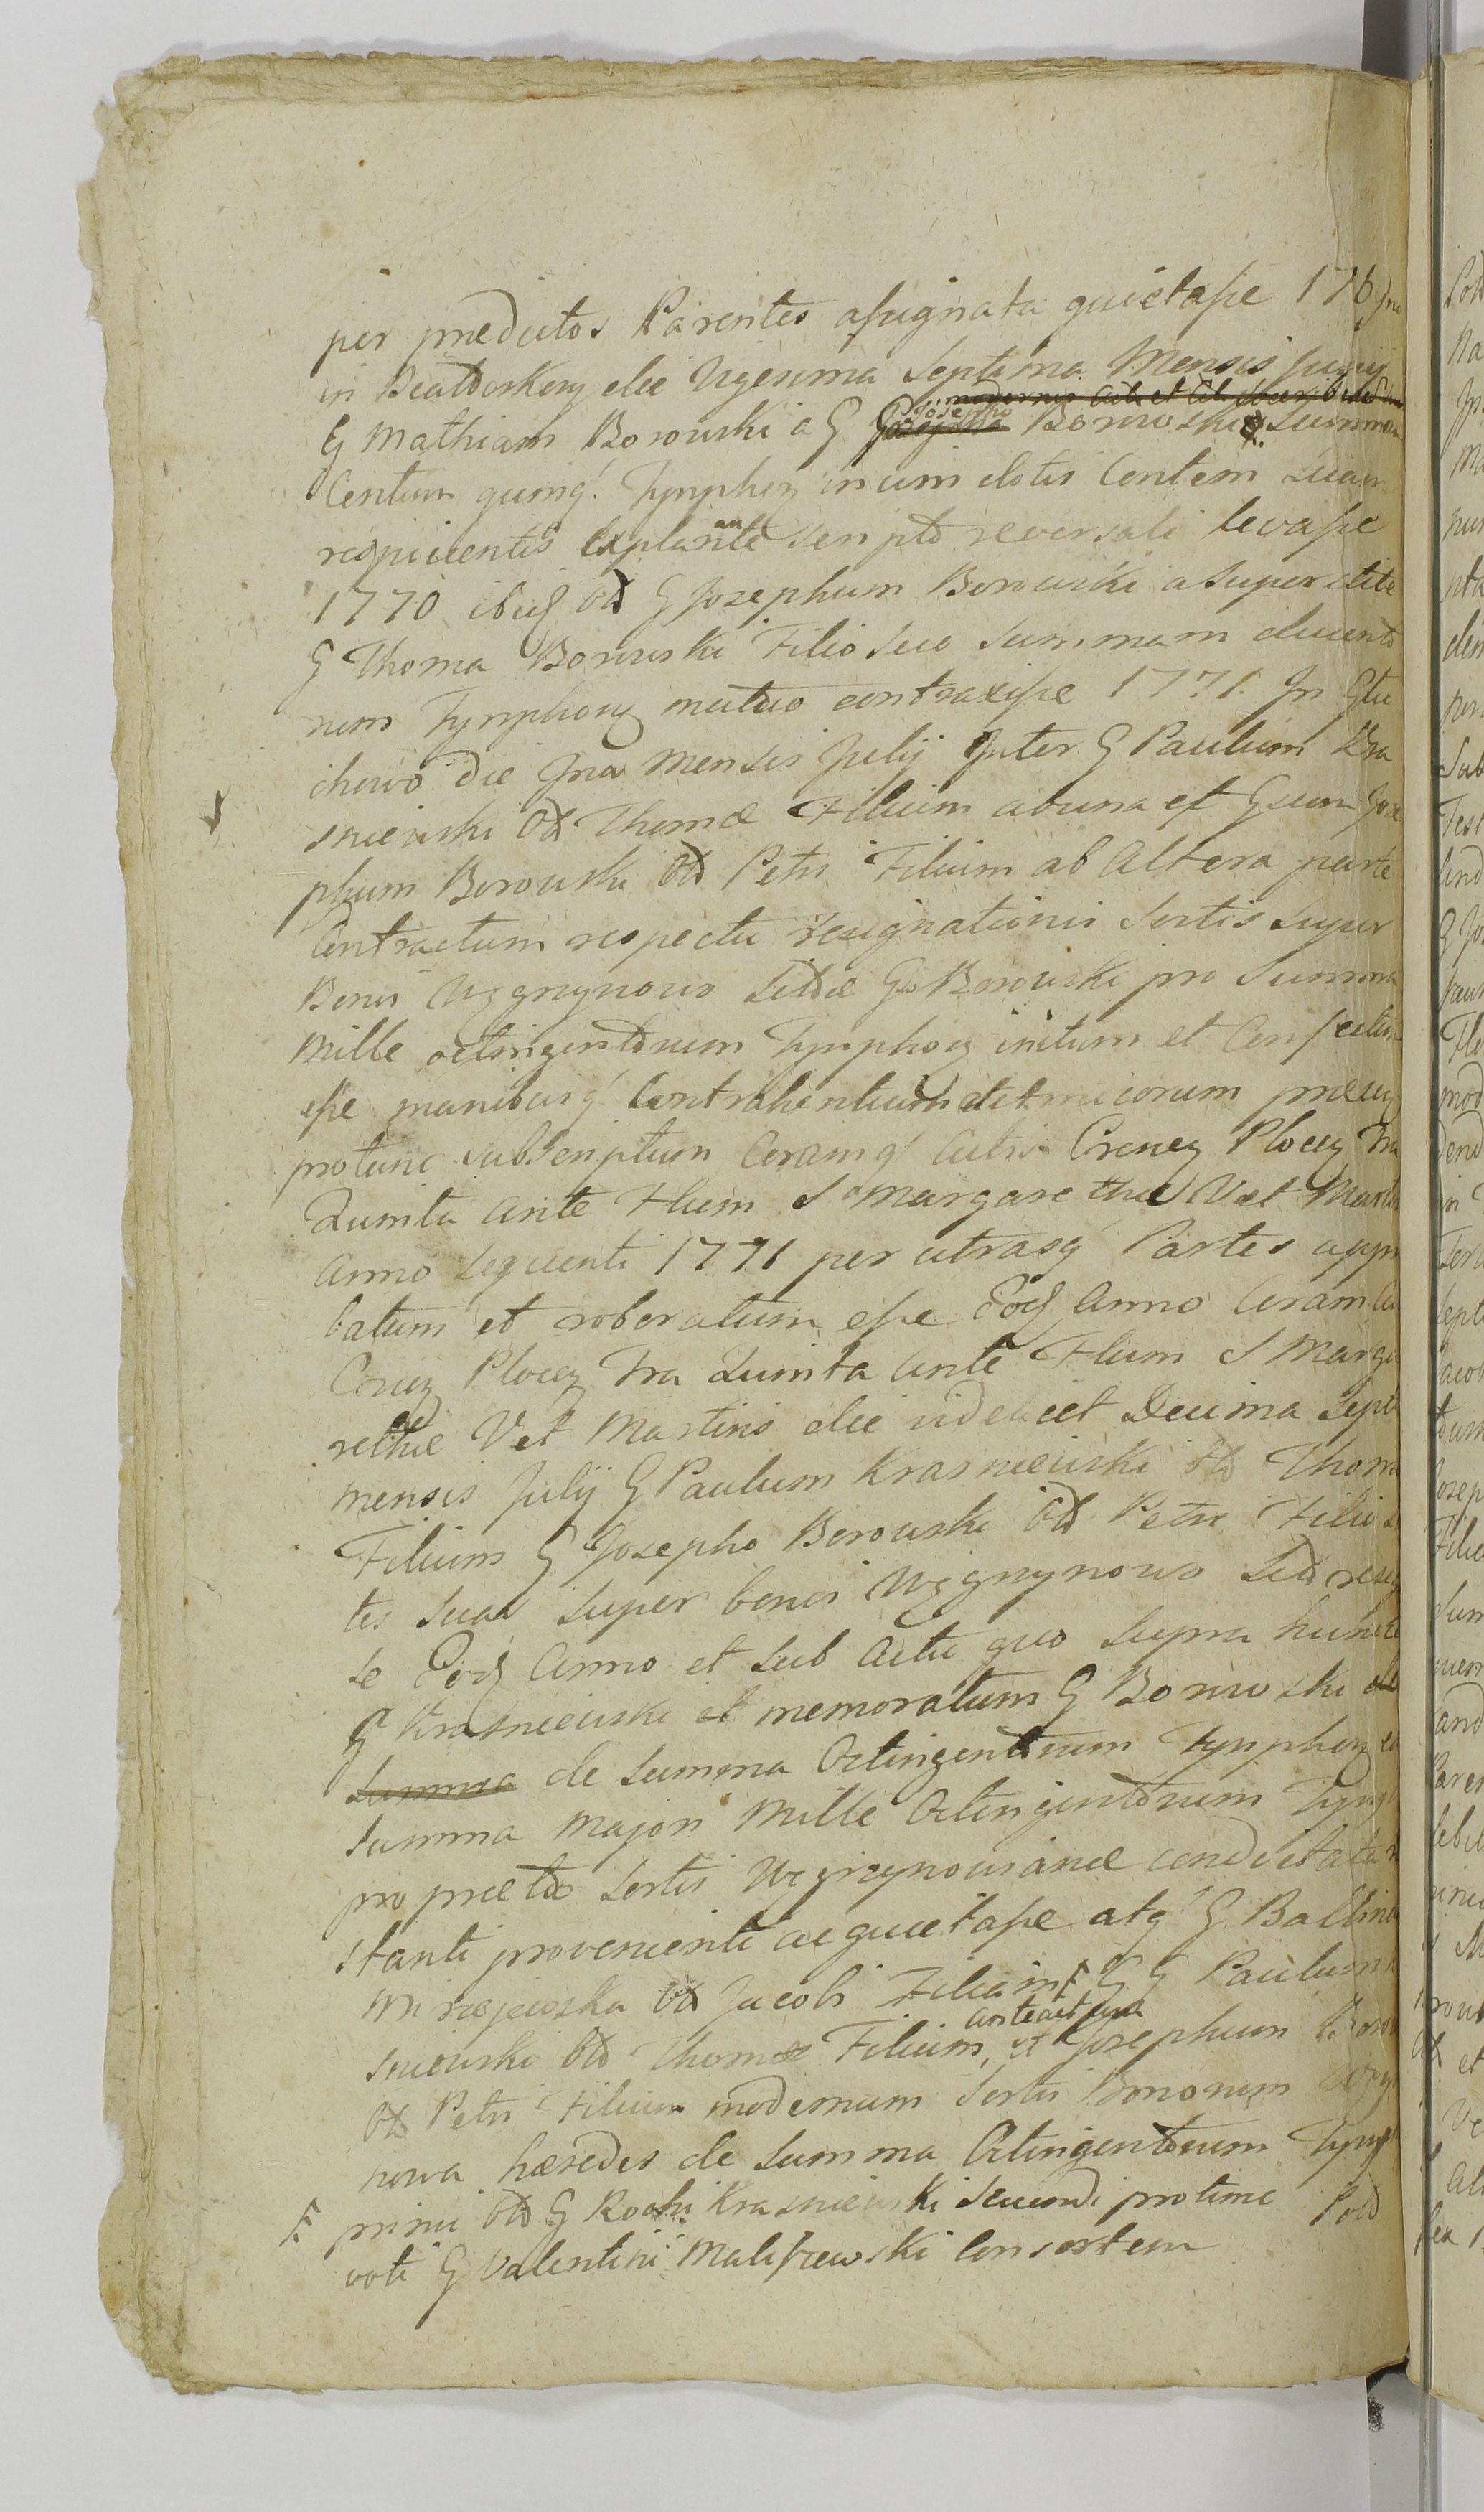 per predictos Parentes assignata quietasse 176
in Die Vigesima Septima Mensis Junij
G Mathiam Borowski a G Josepho Borowski Summam
Centum quinq Tynphoz in vim dotis Contem Suam
respicientis explanante scripto reversali levasse
1770 ibid Od G Josephum Borowski a Superstite
G Thoma Borowski Filio Suo Summam ducento
rum Tynphoz mutuo contraxisse 1771. In Glu
chowo die Jma Mensis Julij Inter G Paulum Kra
sniewski Od Thomæ Filium ab una et Gsum Jose
phum Borowski Od Petri Filium ab Altera parte
Contractum respectu resignationis Sortis super
Bonis Węgrzynowo Gso Borowski pro Summa
Mille octingentorum Tynphoz initum et Confectum
esse manibusq Contrahentium et Amicorum
protunc Subscriptum Coramq Actis Crenez Plocez Fria
Quinta ante Fstum S Margarethæ Vet Martiris
Anno Sequenti 1771 per utrasq Partes appro
batum et roboratum esse Eod Anno Coram
Plocez Fria Quinta ante Fstum S Marga
rethæ Vet Martiris die videlicet Decima Septima
mensis Julij G Paulum Krasniewski Od Thomæ
Filium G Josepho Borowski Od Petri Filio
tes Suas super bonis Węgrzynowo
se Eod Anno et sub Actu quo supra hunc
G Krasniewski et memoratum G Borowski de
Summa de Summa Octingentorum Tynphoz
Summa Majori Mille Octingentorum Tynph
pro prætio Sortis Węgrzynowianæ
stanti proveniente ac quietasse atq G Baltin
Mirzejewska Od Jacobi Filiam G G Paulum
sniewski Od Thomæ Filium, anteactum et Josephum Borow
Od Petri Filium modernum Sortis Bonorum
nowa hæredes de Summa Octingentorum Tynph
primi Od G Rochi Krasniewski Secundi protunc
voti G Valentini Maliszewski Consortem